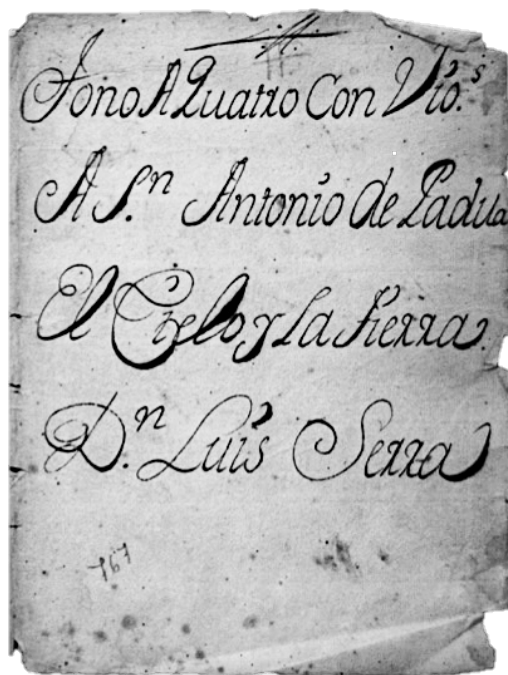 Tono A Quatro Con Vio.s
A S.n Antonio de Padua
El Cielo y La tierra
D.n Luis Serra
167